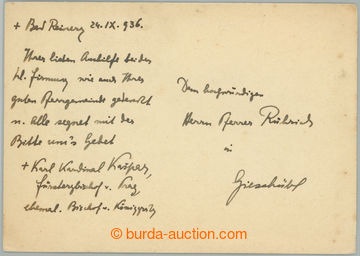 + Bad Reinerz 24. IX. 936.
Ihrer lieben Anhilfe bei der
hl. Firmung wie auch Ihrer
guten Pfarrgemeinde gedenkt
u. Alle segnet mit der
Bitte um's Gebet
+ Karl Kardinal Kašpar,
Fürsterzbischof v. Prag
ehemal. Bischof v. Königgrätz
Dem hochwürdigen
Herrn Pfarrer Rührich
in
Gieshübl
burda-auction.com